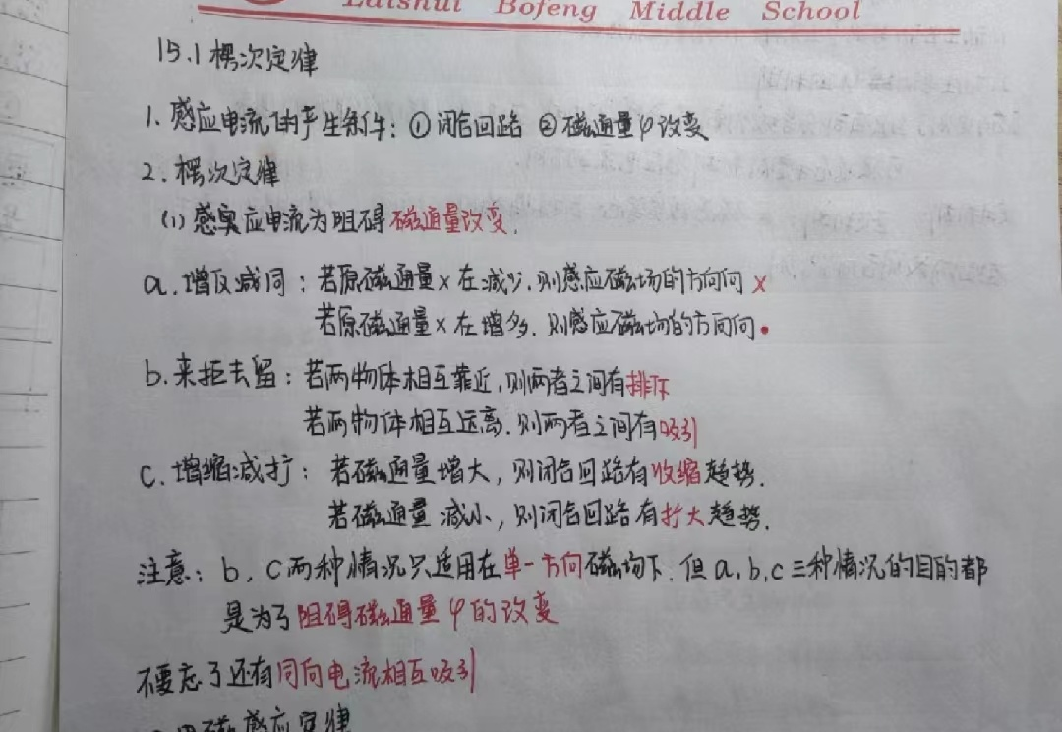 Laishui Bofeng Middle School
15.1 楞次定律
1. 感应电流的产生条件: ①闭合回路 ②磁通量φ改变
2. 楞次定律
(1) 感应电流为阻碍磁通量改变.
a. 增反减同: 若原磁通量×在减少, 则感应磁场的方向向 ×
若原磁通量×在增多. 则感应磁场的方向向 •
b. 来拒去留: 若两物体相互靠近, 则两者之间有排斥
若两物体相互远离. 则两者之间有吸引
c. 增缩减扩: 若磁通量增大, 则闭合回路有收缩趋势.
若磁通量减小, 则闭合回路有扩大趋势.
注意: b. c两种情况只适用在单一方向磁场下. 但a. b. c三种情况的目的都
是为了阻碍磁通量φ的改变
不要忘了还有同向电流相互吸引
电磁感应定律